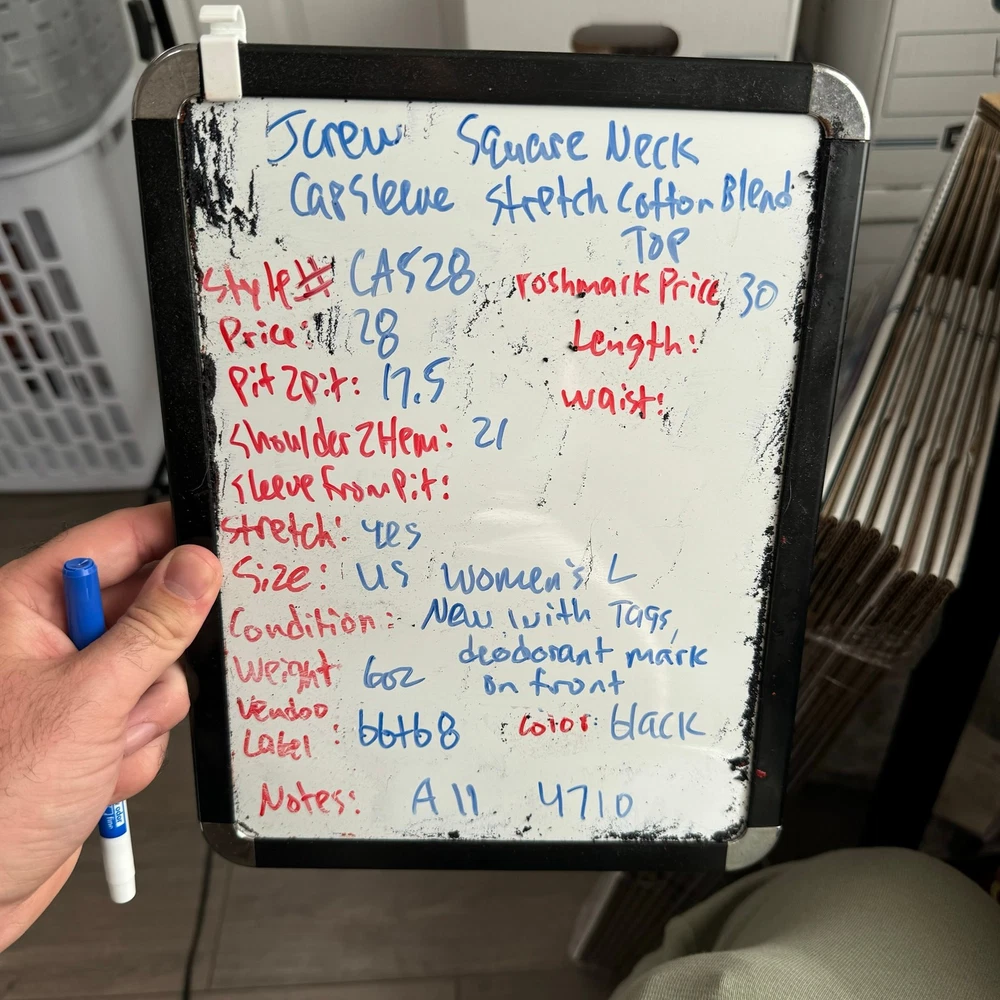 Jcrew Square Neck
Capsleeve Stretch Cotton Blend
Top
Style# CA528 Poshmark Price 30
Price: 28 Length:
Pit2pit: 17.5 waist:
Shoulder2Hem: 21
Sleeve from Pit:
Stretch: yes
Size: US Women's L
Condition: New with Tags,
deodorant mark
on front
Weight 6oz
Vendoo
Label : bbtb8 Color: black
Notes: A11 4710